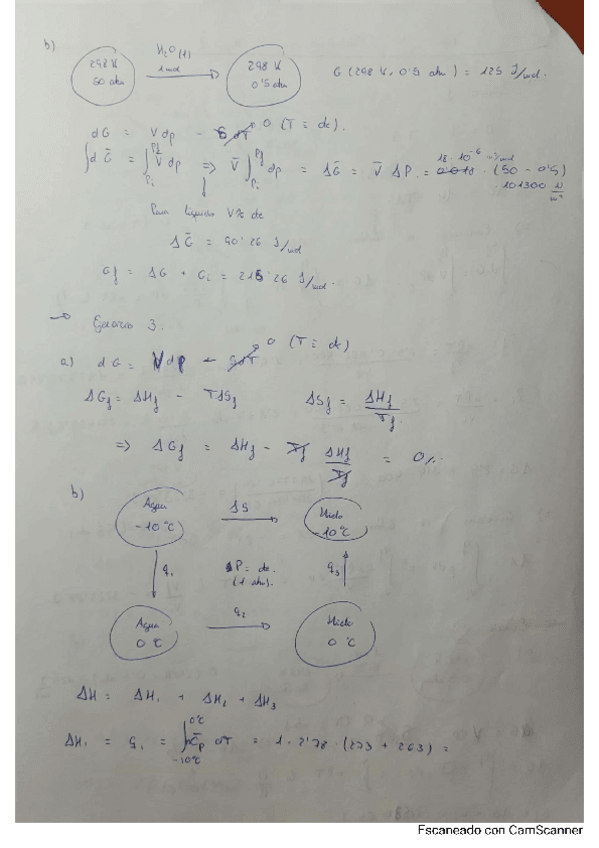 b)
H₂O (l)
1 mol
292 K
50 atm
298 K
0'5 atm
G (298 K, 0'5 atm) = 125 J/mol.
dG = V dp - S dT 0 (T = cte).
∫dG̅ = ∫ V̅ dp => V̅ ∫ dp = ΔG̅ = V̅ ΔP = 18·10⁻⁶ m³/mol · (50 - 0'5) · 101300 N/m²
Pf Pi Pf Pi
Para líquidos V ≈ cte
ΔG̅ = 90'26 J/mol
Gf = ΔG + Gi = 215'26 J/mol.
→ Ejercicio 3.
a) dG = Vdp - SdT 0 (T = cte)
ΔGf = ΔHf - TΔSf ΔSf = ΔHf/Tf
=> ΔGf = ΔHf - Tf ΔHf/Tf = 0
b)
Agua
-10 ºC
ΔS
Hielo
-10 ºC
q₁
P = cte
(1 atm).
q₃
Agua
0 ºC
q₂
Hielo
0 ºC
ΔH = ΔH₁ + ΔH₂ + ΔH₃
ΔH₁ = q₁ = ∫ nC̅p dT = 1 · 2'78 · (273 + 263) =
0ºC
-10ºC
Escaneado con CamScanner